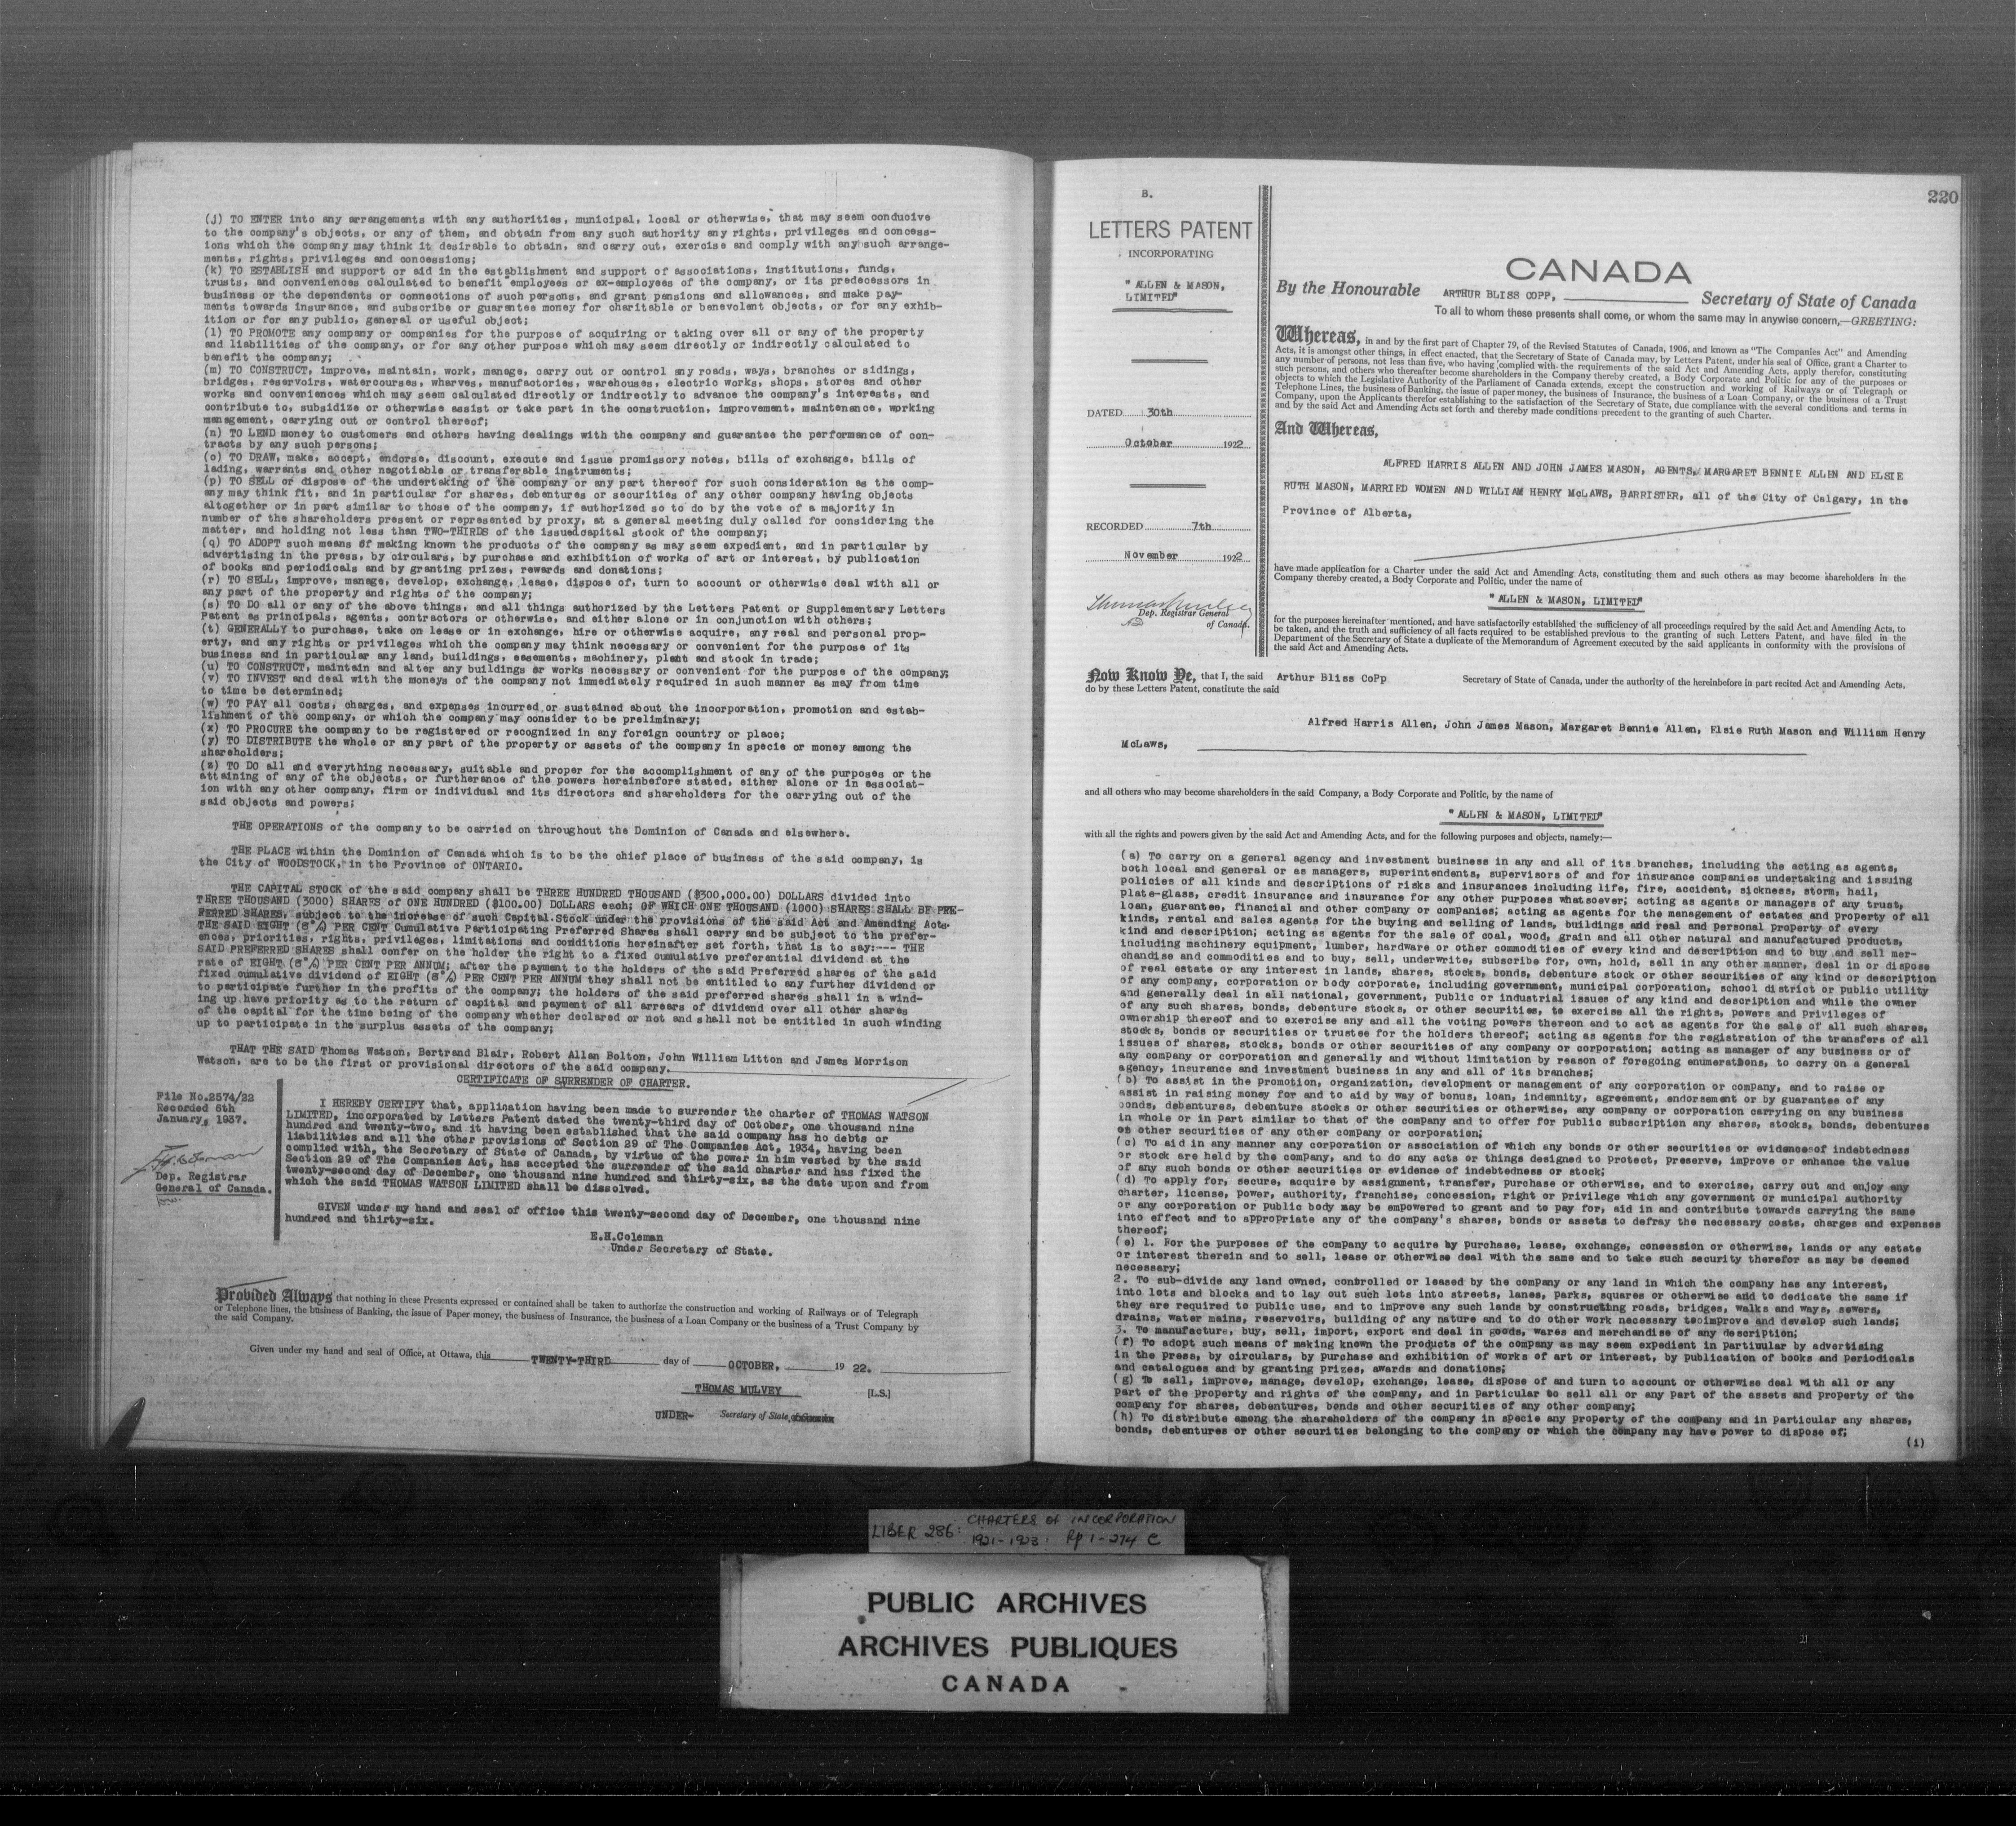 (j) TO ENTER into any arrangements with any authorities, municipal, local or otherwise, that may seem conducive
to the company's objects, or any of them, and obtain from any such authority any rights, privileges and concess-
ions which the company may think it desirable to obtain, and carry out, exercise and comply with any such arrange-
ments, rights, privileges and concessions;
(k) TO ESTABLISH and support or aid in the establishment and support of associations, institutions, funds,
trusts, and conveniences calculated to benefit employees or ex-employees of the company, or its predecessors in
business or the dependents or connections of such persons, and grant pensions and allowances, and make pay-
ments towards insurance, and subscribe or guarantee money for charitable or benevolent objects, or for any exhib-
ition or for any public, general or useful object;
(l) TO PROMOTE any company or companies for the purpose of acquiring or taking over all or any of the property
and liabilities of the company, or for any other purpose which may seem directly or indirectly calculated to
benefit the company;
(m) TO CONSTRUCT, improve, maintain, work, manage, carry out or control any roads, ways, branches or sidings,
bridges, reservoirs, watercourses, wharves, manufactories, warehouses, electric works, shops, stores and other
works and conveniences which may seem calculated directly or indirectly to advance the company's interests, and
contribute to, subsidize or otherwise assist or take part in the construction, improvement, maintenance, working
management, carrying out or control thereof;
(n) TO LEND money to customers and others having dealings with the company and guarantee the performance of con-
tracts by any such persons;
(o) TO DRAW, make, accept, endorse, discount, execute and issue promissory notes, bills of exchange, bills of
lading, warrants and other negotiable or transferable instruments;
(p) TO SELL or dispose of the undertaking of the company or any part thereof for such consideration as the comp-
any may think fit, and in particular for shares, debentures or securities of any other company having objects
altogether or in part similar to those of the company, if authorized so to do by the vote of a majority in
number of the shareholders present or represented by proxy, at a general meeting duly called for considering the
matter, and holding not less than TWO-THIRDS of the issued capital stock of the company;
(q) TO ADOPT such means of making known the products of the company as may seem expedient, and in particular by
advertising in the press, by circulars, by purchase and exhibition of works of art or interest, by publication
of books and periodicals and by granting prizes, rewards and donations;
(r) TO SELL, improve, manage, develop, exchange, lease, dispose of, turn to account or otherwise deal with all or
any part of the property and rights of the company;
(s) TO DO all or any of the above things, and all things authorized by the Letters Patent or Supplementary Letters
Patent as principals, agents, contractors or otherwise, and either alone or in conjunction with others;
(t) GENERALLY to purchase, take on lease or in exchange, hire or otherwise acquire, any real and personal prop-
erty, and any rights or privileges which the company may think necessary or convenient for the purpose of its
business and in particular any land, buildings, easements, machinery, plant and stock in trade;
(u) TO CONSTRUCT, maintain and alter any buildings or works necessary or convenient for the purpose of the company;
(v) TO INVEST and deal with the moneys of the company not immediately required in such manner as may from time
to time be determined;
(w) TO PAY all costs, charges, and expenses incurred or sustained about the incorporation, promotion and estab-
lishment of the company, or which the company may consider to be preliminary;
(x) TO PROCURE the company to be registered or recognized in any foreign country or place;
(y) TO DISTRIBUTE the whole or any part of the property or assets of the company in specie or money among the
shareholders;
(z) TO DO all and everything necessary, suitable and proper for the accomplishment of any of the purposes or the
attaining of any of the objects, or furtherance of the powers hereinbefore stated, either alone or in associat-
ion with any other company, firm or individual and its directors and shareholders for the carrying out of the
said objects and powers;
THE OPERATIONS of the company to be carried on throughout the Dominion of Canada and elsewhere.
THE PLACE within the Dominion of Canada which is to be the chief place of business of the said company, is
the City of WOODSTOCK, in the Province of ONTARIO.
THE CAPITAL STOCK of the said company shall be THREE HUNDRED THOUSAND ($300,000.00) DOLLARS divided into
THREE THOUSAND (3000) SHARES of ONE HUNDRED ($100.00) DOLLARS each; OF WHICH ONE THOUSAND (1000) SHARES SHALL BE PRE-
FERRED SHARES, subject to the increase of such Capital Stock under the provisions of the said Act and Amending Acts.
THE SAID EIGHT (8%) PER CENT Cumulative Participating Preferred Shares shall carry and be subject to the prefer-
ences, priorities, rights, privileges, limitations and conditions hereinafter set forth, that is to say:--- THE
SAID PREFERRED SHARES shall confer on the holder the right to a fixed cumulative preferential dividend at the
rate of EIGHT (8%) PER CENT PER ANNUM; after the payment to the holders of the said Preferred shares of the said
fixed cumulative dividend of EIGHT (8%) PER CENT PER ANNUM they shall not be entitled to any further dividend or
to participate further in the profits of the company; the holders of the said preferred shares shall in a wind-
ing up have priority as to the return of capital and payment of all arrears of dividend over all other shares
of the capital for the time being of the company whether declared or not and shall not be entitled in such winding
up to participate in the surplus assets of the company;
THAT THE SAID Thomas Watson, Bertrand Blair, Robert Allan Bolton, John William Litton and James Morrison
Watson, are to be the first or provisional directors of the said company.
CERTIFICATE OF SURRENDER OF CHARTER.
File No.2574/22
Recorded 6th
January, 1937.
Dep. Registrar
General of Canada.
I HEREBY CERTIFY that, application having been made to surrender the charter of THOMAS WATSON
LIMITED, incorporated by Letters Patent dated the twenty-third day of October, one thousand nine
hundred and twenty-two, and it having been established that the said company has no debts or
liabilities and all the other provisions of Section 29 of The Companies Act, 1934, having been
complied with, the Secretary of State of Canada, by virtue of the power in him vested by the said
Section 29 of The Companies Act, has accepted the surrender of the said charter and has fixed the
twenty-second day of December, one thousand nine hundred and thirty-six, as the date upon and from
which the said THOMAS WATSON LIMITED shall be dissolved.
GIVEN under my hand and seal of office this twenty-second day of December, one thousand nine
hundred and thirty-six.
E.H.Coleman
Under Secretary of State.
Provided Always that nothing in these Presents expressed or contained shall be taken to authorize the construction and working of Railways or of Telegraph
or Telephone lines, the business of Banking, the issue of Paper money, the business of Insurance, the business of a Loan Company or the business of a Trust Company by
the said Company.
Given under my hand and seal of Office, at Ottawa, this TWENTY-THIRD day of OCTOBER, 19 22.
THOMAS MULVEY [L.S.]
UNDER- Secretary of State
220
B.
LETTERS PATENT
INCORPORATING
"ALLEN & MASON,
LIMITED"
DATED 30th
October 1922
RECORDED 7th
November 1922
Dep. Registrar General
of Canada.
CANADA
By the Honourable ARTHUR BLISS COPP, Secretary of State of Canada
To all to whom these presents shall come, or whom the same may in anywise concern,—GREETING:
Whereas, in and by the first part of Chapter 79, of the Revised Statutes of Canada, 1906, and known as "The Companies Act" and Amending
Acts, it is amongst other things, in effect enacted, that the Secretary of State of Canada may, by Letters Patent, under his seal of Office, grant a Charter to
any number of persons, not less than five, who having complied with the requirements of the said Act and Amending Acts, apply therefor, constituting
such persons, and others who thereafter become shareholders in the Company thereby created, a Body Corporate and Politic for any of the purposes or
objects to which the Legislative Authority of the Parliament of Canada extends, except the construction and working of Railways or of Telegraph or
Telephone Lines, the business of Banking, the issue of paper money, the business of Insurance, the business of a Loan Company, or the business of a Trust
Company, upon the Applicants therefor establishing to the satisfaction of the Secretary of State, due compliance with the several conditions and terms in
and by the said Act and Amending Acts set forth and thereby made conditions precedent to the granting of such Charter.
And Whereas,
ALFRED HARRIS ALLEN AND JOHN JAMES MASON, AGENTS, MARGARET BENNIE ALLEN AND ELSIE
RUTH MASON, MARRIED WOMEN AND WILLIAM HENRY McLAWS, BARRISTER, all of the City of Calgary, in the
Province of Alberta,
have made application for a Charter under the said Act and Amending Acts, constituting them and such others as may become shareholders in the
Company thereby created, a Body Corporate and Politic, under the name of
"ALLEN & MASON, LIMITED"
for the purposes hereinafter mentioned, and have satisfactorily established the sufficiency of all proceedings required by the said Act and Amending Acts, to
be taken, and the truth and sufficiency of all facts required to be established previous to the granting of such Letters Patent, and have filed in the
Department of the Secretary of State a duplicate of the Memorandum of Agreement executed by the said applicants in conformity with the provisions of
the said Act and Amending Acts.
Now Know Ye, that I, the said Arthur Bliss CoPp Secretary of State of Canada, under the authority of the hereinbefore in part recited Act and Amending Acts,
do by these Letters Patent, constitute the said
Alfred Harris Allen, John James Mason, Margaret Bennie Allen, Elsie Ruth Mason and William Henry
McLaws,
and all others who may become shareholders in the said Company, a Body Corporate and Politic, by the name of
"ALLEN & MASON, LIMITED"
with all the rights and powers given by the said Act and Amending Acts, and for the following purposes and objects, namely:—
(a) To carry on a general agency and investment business in any and all of its branches, including the acting as agents,
both local and general or as managers, superintendents, supervisors of and for insurance companies undertaking and issuing
policies of all kinds and descriptions of risks and insurances including life, fire, accident, sickness, storm, hail,
plate-glass, credit insurance and insurance for any other purposes whatsoever; acting as agents or managers of any trust,
loan, guarantee, financial and other company or companies; acting as agents for the management of estates and property of all
kinds, rental and sales agents for the buying and selling of lands, buildings and real and personal property of every
kind and description; acting as agents for the sale of coal, wood, grain and all other natural and manufactured products,
including machinery equipment, lumber, hardware or other commodities of every kind and description and to buy and sell mer-
chandise and commodities and to buy, sell, underwrite, subscribe for, own, hold, sell in any other manner, deal in or dispose
of real estate or any interest in lands, shares, stocks, bonds, debenture stock or other securities of any kind or description
of any company, corporation or body corporate, including government, municipal corporation, school district or public utility
and generally deal in all national, government, public or industrial issues of any kind and description and while the owner
of any such shares, bonds, debenture stocks, or other securities, to exercise all the rights, powers and privileges of
ownership thereof and to exercise any and all the voting powers thereon and to act as agents for the sale of all such shares,
stocks, bonds or securities or trustee for the holders thereof; acting as agents for the registration of the transfers of all
issues of shares, stocks, bonds or other securities of any company or corporation; acting as manager of any business or of
any company or corporation and generally and without limitation by reason of foregoing enumerations, to carry on a general
agency, insurance and investment business in any and all of its branches;
(b) To assist in the promotion, organization, development or management of any corporation or company, and to raise or
assist in raising money for and to aid by way of bonus, loan, indemnity, agreement, endorsement or by guarantee of any
bonds, debentures, debenture stocks or other securities or otherwise, any company or corporation carrying on any business
in whole or in part similar to that of the company and to offer for public subscription any shares, stocks, bonds, debentures
or other securities of any other company or corporation;
(c) To aid in any manner any corporation or association of which any bonds or other securities or evidences of indebtedness
or stock are held by the company, and to do any acts or things designed to Protect, Preserve, improve or enhance the value
of any such bonds or other securities or evidence of indebtedness or stock;
(d) To apply for, secure, acquire by assignment, transfer, purchase or otherwise, and to exercise, carry out and enjoy any
charter, license, power, authority, franchise, concession, right or privilege which any government or municipal authority
or any corporation or public body may be empowered to grant and to pay for, aid in and contribute towards carrying the same
into effect and to appropriate any of the company's shares, bonds or assets to defray the necessary costs, charges and expenses
thereof;
(e) 1. For the purposes of the company to acquire by Purchase, lease, exchange, concession or otherwise, lands or any estate
or interest therein and to sell, lease or otherwise deal with the same and to take such security therefor as may be deemed
necessary;
2. To sub-divide any land owned, controlled or leased by the company or any land in which the company has any interest,
into lots and blocks and to lay out such lots into streets, lanes, parks, squares or otherwise and to dedicate the same if
they are required to public use, and to improve any such lands by constructing roads, bridges, walks and ways, sewers,
drains, water mains, reservoirs, building of any nature and to do other work necessary to improve and develop such lands;
3. To manufacture, buy, sell, import, export and deal in goods, wares and merchandise of any description;
(f) To adopt such means of making known the products of the company as may seem expedient in Partiuular by advertising
in the press, by circulars, by purchase and exhibition of works of art or interest, by publication of books and periodicals
and catalogues and by granting prizes, awards and donations;
(g) To sell, improve, manage, develop, exchange, lease, dispose of and turn to account or otherwise deal with all or any
part of the property and rights of the company, and in particular to sell all or any part of the assets and property of the
company for shares, debentures, bonds and other securities of any other company;
(h) To distribute among the shareholders of the company in specie any property of the company and in particular any shares,
bonds, debentures or other securities belonging to the company or which the company may have power to dispose of;
(1)
LIBER 286: CHARTERS OF INCORPORATION
1921-1923: Pp 1-274 C
PUBLIC ARCHIVES
ARCHIVES PUBLIQUES
CANADA